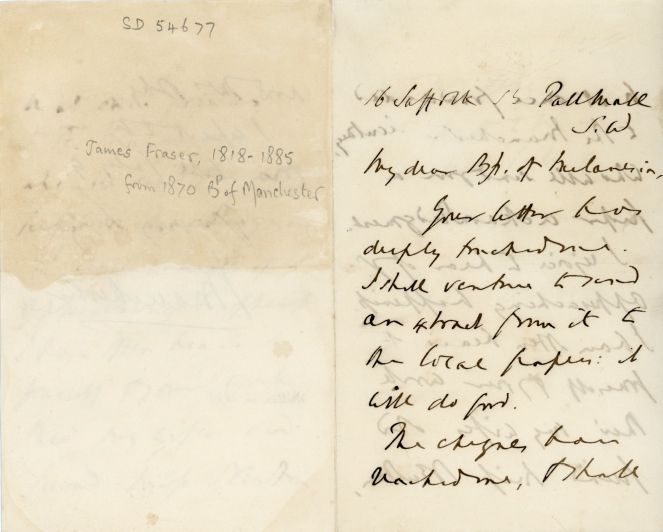 SD 54677
James Fraser, 1818-1885
from 1870 Bp of Manchester
16 Suffolk St Pall Mall
S.W
My dear Bp. of Melanesia,
Your letter has
deeply touched me.
I shall venture to send
an extract from it to
the local papers: it
will do good.
The cheques have
reached me, & I shall